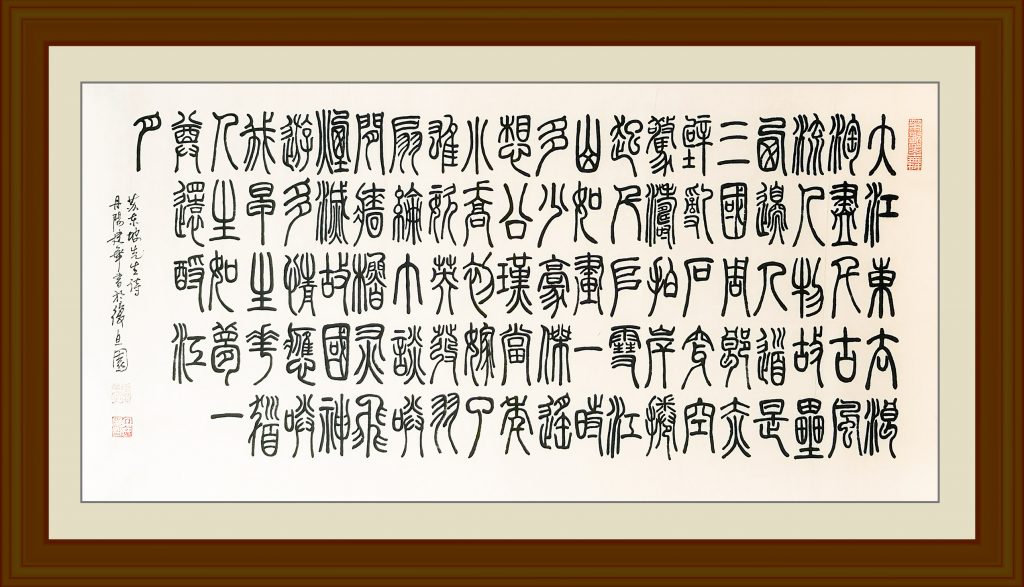 大江東去浪
淘盡千古風
流人物故壘
西邊人道是
三國周郎赤
壁亂石穿空
驚濤拍岸捲
起千堆雪江
山如畫一時
多少豪傑遙
想公瑾當年
小喬初嫁了
雄姿英發羽
扇綸巾談笑
間檣櫓灰飛
煙滅故國神
遊多情應笑
我早生華髮
人生如夢一
尊還酹江
月
苏东坡先生诗
丹陽書於復旦園